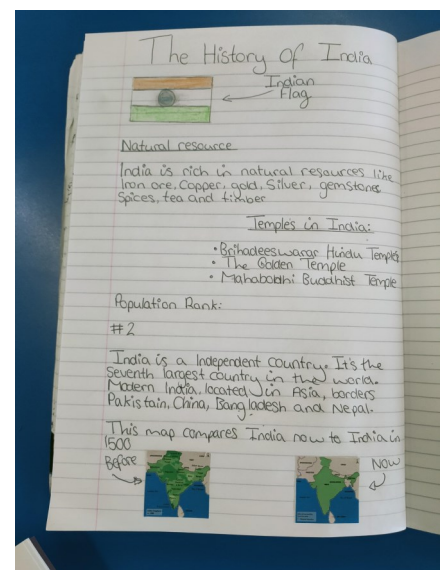 The History Of India
Indian
Flag
Natural resource
India is rich in natural resources like
Iron ore, Copper, gold, Silver, gemstones
Spices, tea and timber
Temples in India:
• Brihadeeswarar Hindu Temple
• The Golden Temple
• Mahabodhi Buddhist Temple
Population Rank:
#2
India is a Independent country. It's the
Seventh largest country in the world.
Modern India, located in Asia, borders
Pakistain, China, Bangladesh and Nepal.
This map compares India now to India in
1500
Before
Now